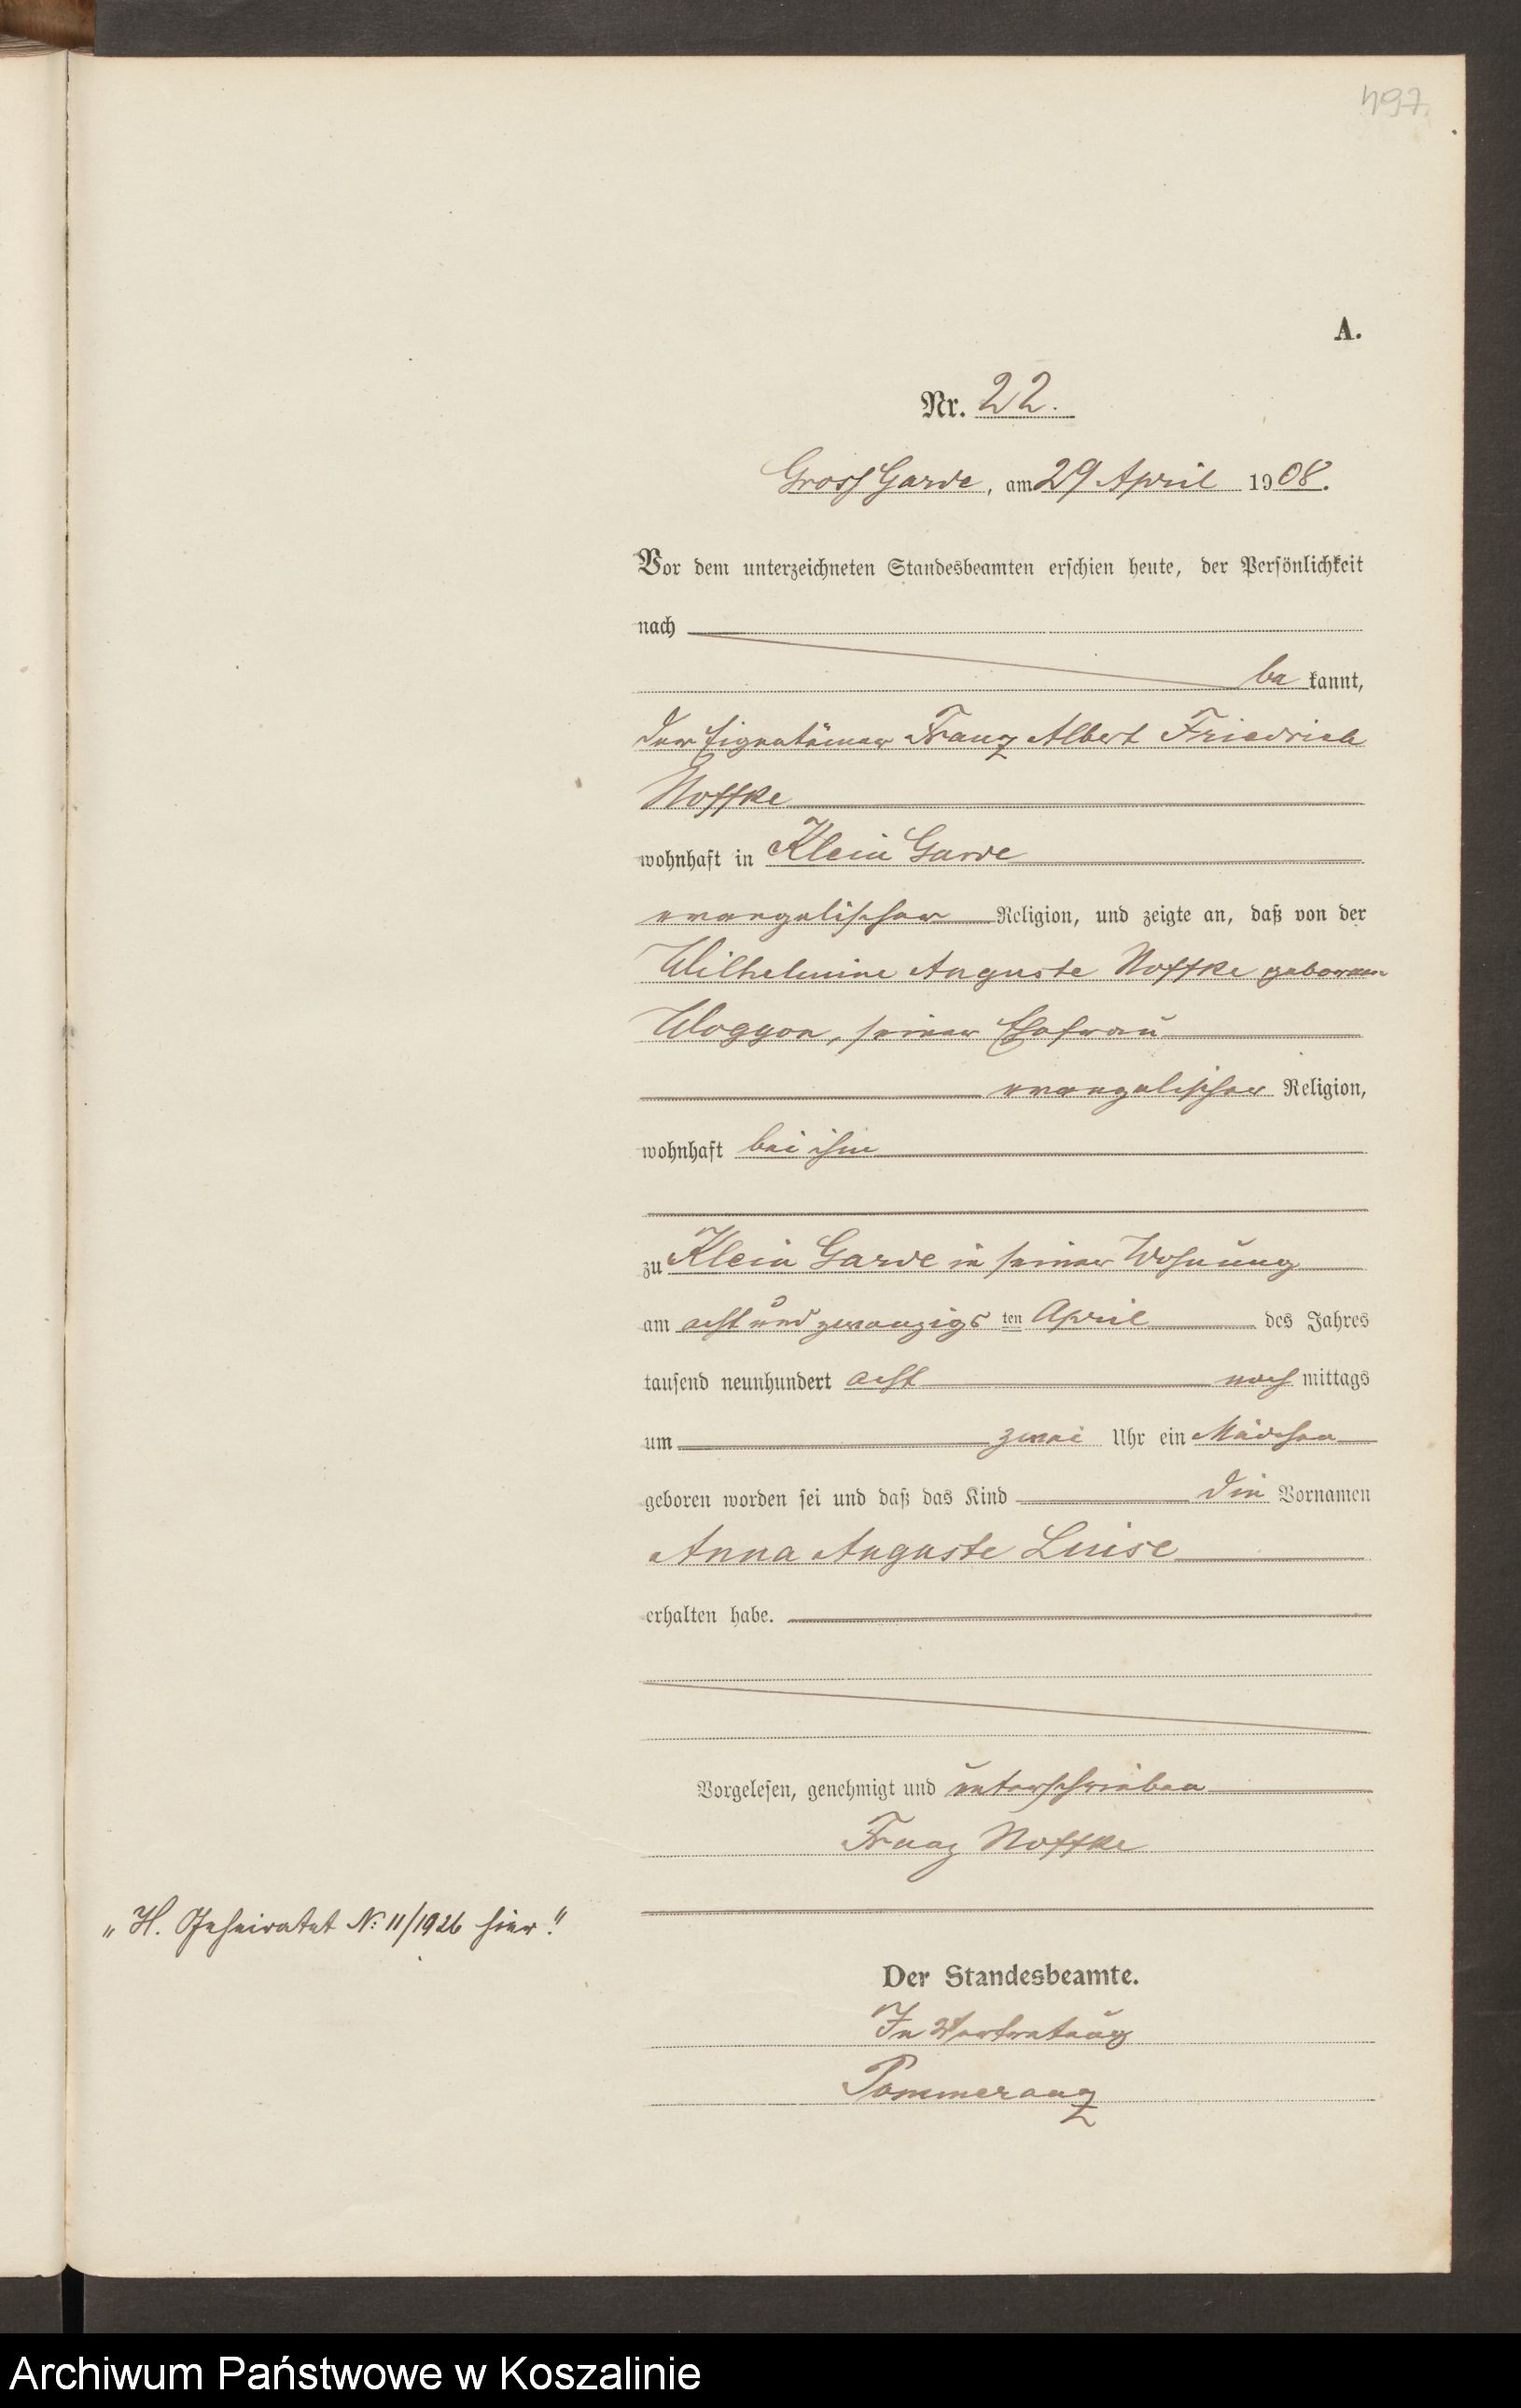 497.
A.
Nr. 22.
Gross Garde, am 29 April 1908.
Vor dem unterzeichneten Standesbeamten erschien heute, der Persönlichkeit
nach
be kannt,
der Eigentümer Franz Albert Friedrich
Noffke
wohnhaft in Klein Garde
evangelischer Religion, und zeigte an, daß von der
Wilhelmine Auguste Noffke geborenen
Woggon, seiner Ehefrau
evangelischer Religion,
wohnhaft bei ihm
zu Klein Garde in seiner Wohnung
am acht und zwanzigs ten April des Jahres
tausend neunhundert acht nach mittags
um zwei Uhr ein Mädchen
geboren worden sei und daß das Kind die Vornamen
Anna Auguste Luise
erhalten habe.
Vorgelesen, genehmigt und unterschrieben
Franz Noffke
„H. Geheiratet No: 11/1926 hier."
Der Standesbeamte.
In Vertretung
Pommeranz
Archiwum Państwowe w Koszalinie